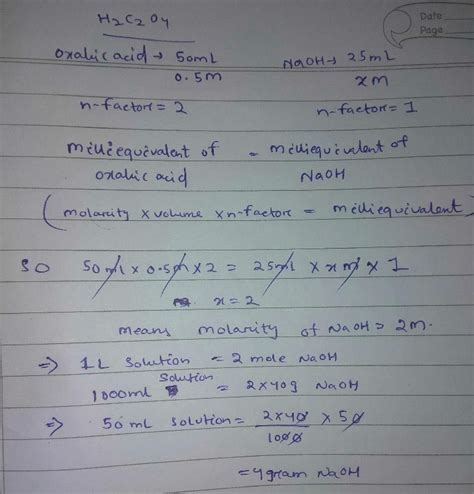 Date
Page
H₂C₂O₄
oxalic acid → 50ml NaOH → 25ml
0.5M xM
n-factor = 2 n-factor = 1
milliequivalent of = milliequivalent of
oxalic acid NaOH
(molarity x volume x n-factor = milliequivalent)
SO 50ml x 0.5M x 2 = 25ml x xM x 1
x = 2
means molarity of NaOH = 2M.
⇒ 1L solution = 2 mole NaOH
1000ml solution = 2x40g NaOH
⇒ 50 mL solution = 2x40/1000 x 50
= 4gram NaOH